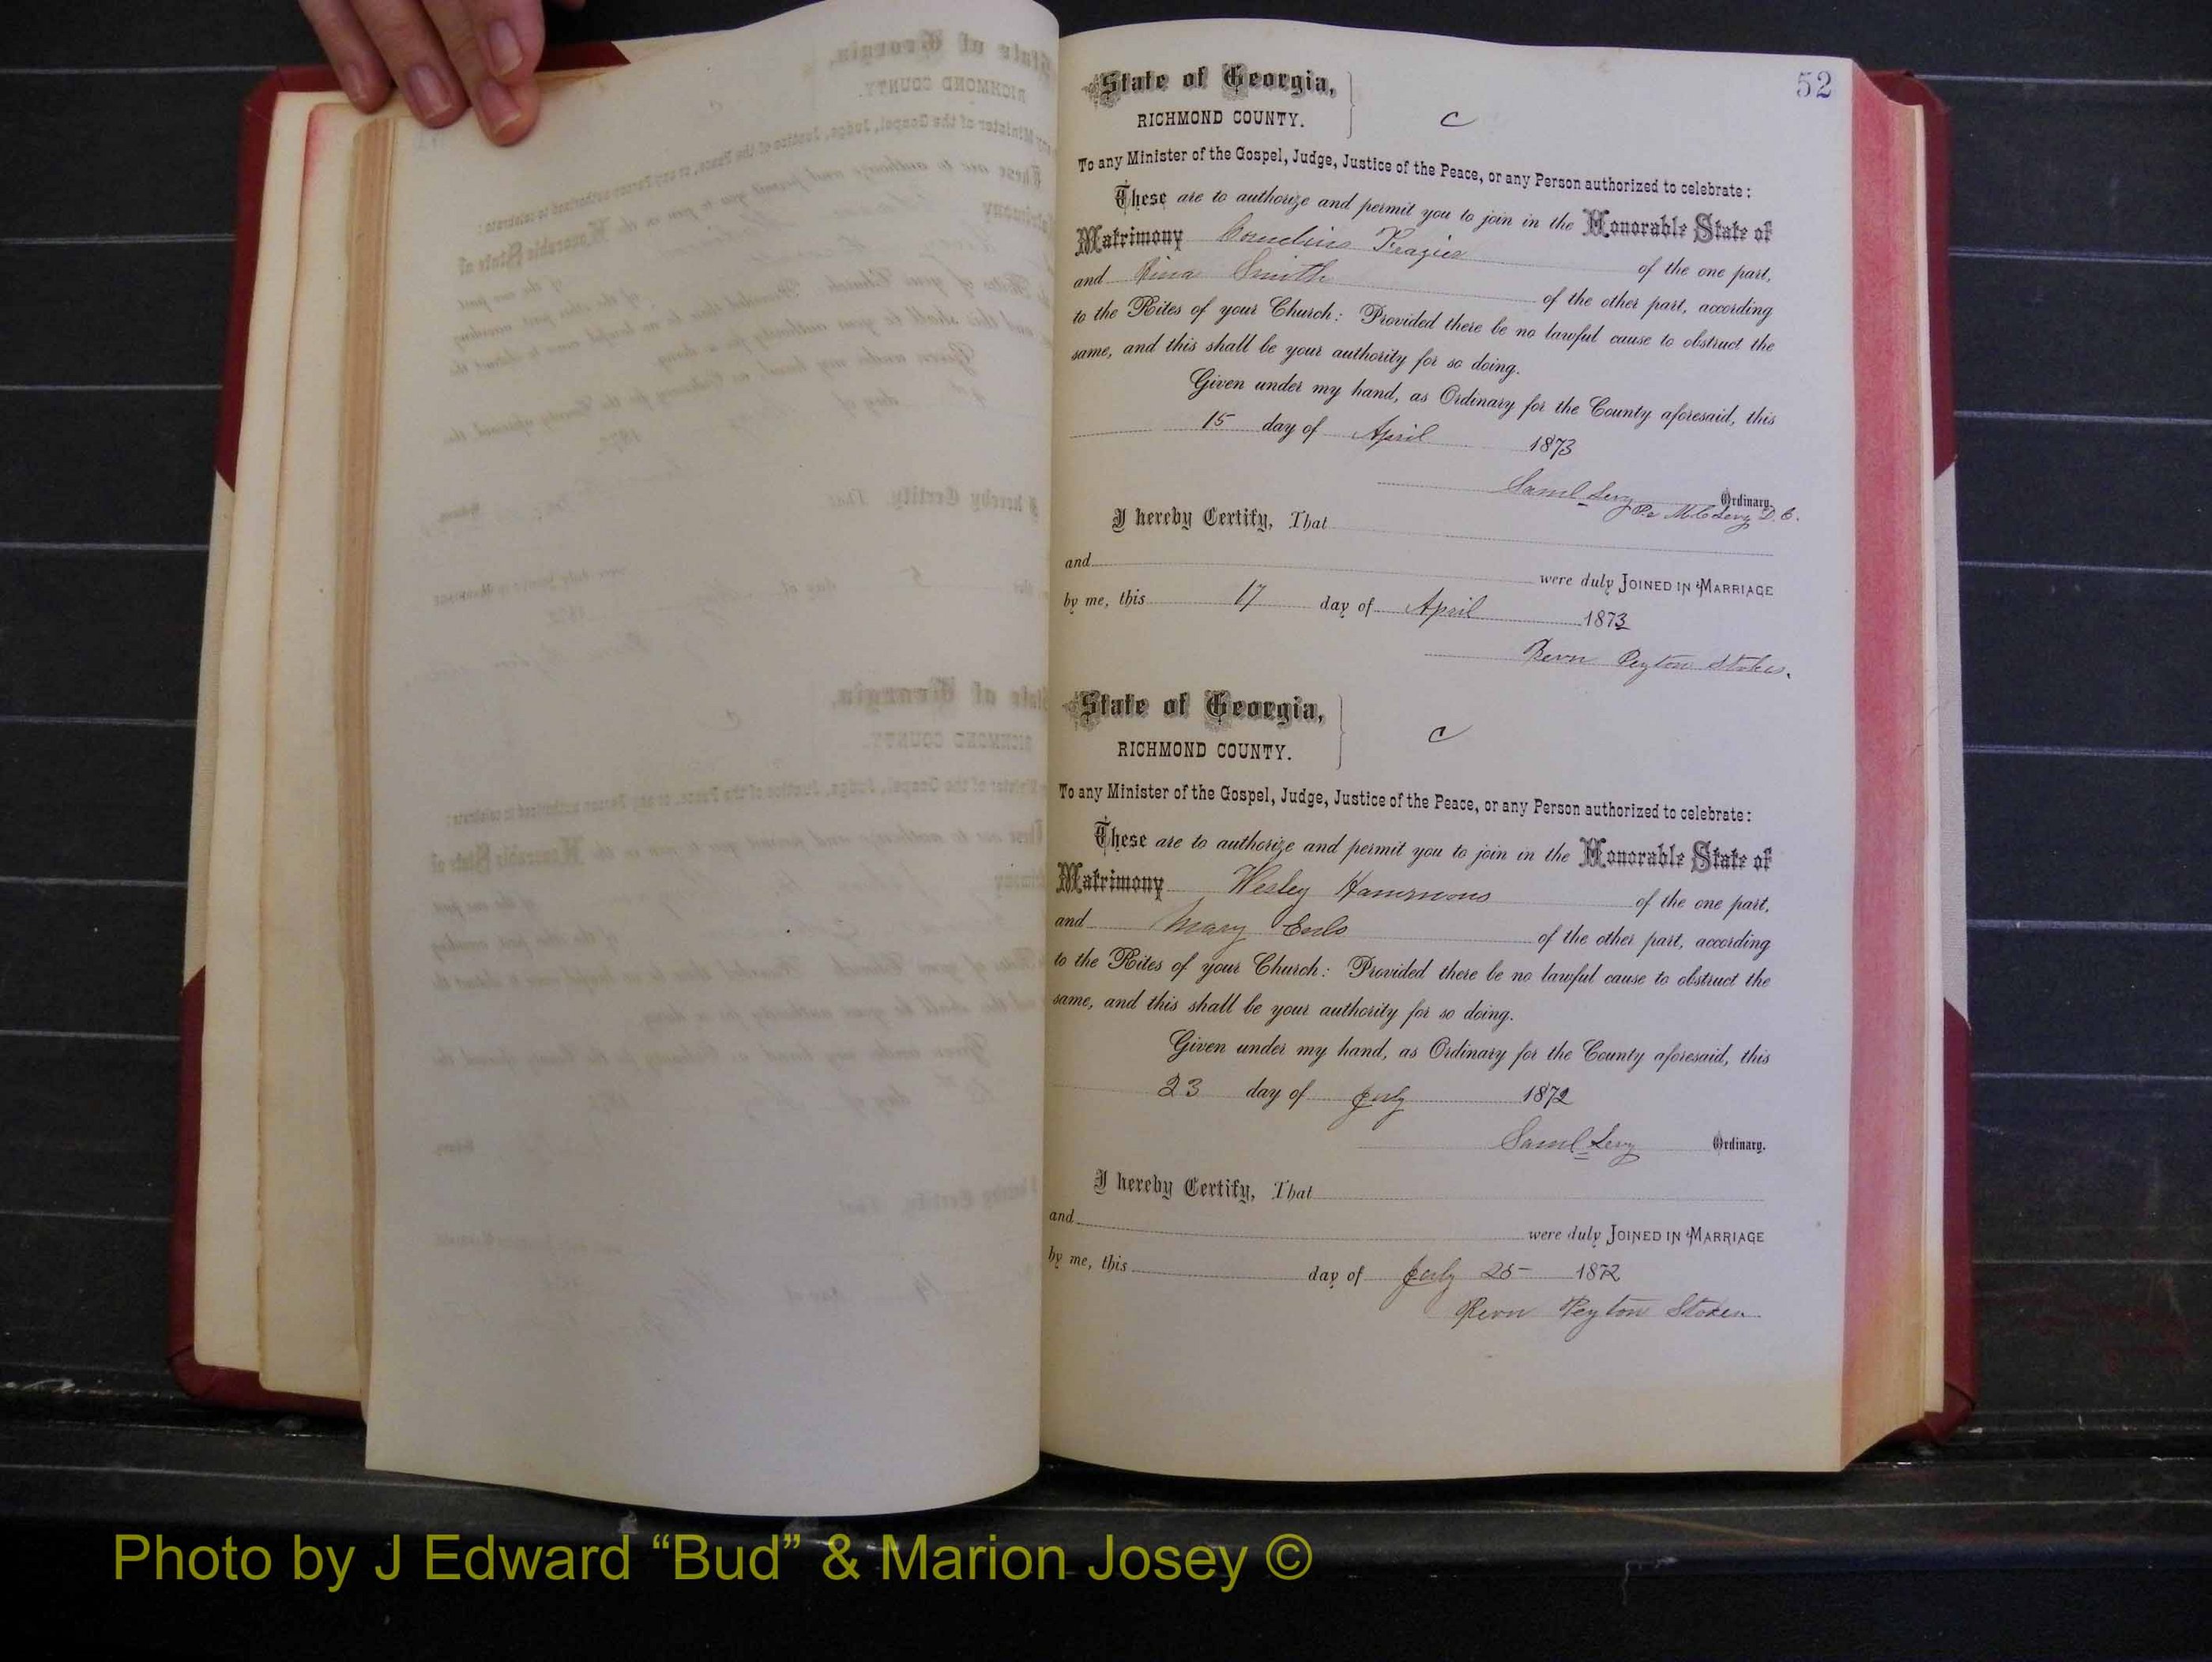 52
State of Georgia,
RICHMOND COUNTY.
C
To any Minister of the Gospel, Judge, Justice of the Peace, or any Person authorized to celebrate:
These are to authorize and permit you to join in the Honorable State of
Matrimony Cornelius Frazier of the one part,
and Smith of the other part, according
to the Rites of your Church: Provided there be no lawful cause to obstruct the
same, and this shall be your authority for so doing.
Given under my hand, as Ordinary for the County aforesaid, this
15 day of April 1873
Saml Levy Ordinary.
Per M C Levy D. C.
I hereby Certify, That
and were duly JOINED IN MARRIAGE
by me, this 17 day of April 1873
Revn Peyton Stokes.
State of Georgia,
RICHMOND COUNTY.
C
To any Minister of the Gospel, Judge, Justice of the Peace, or any Person authorized to celebrate:
These are to authorize and permit you to join in the Honorable State of
Matrimony Wesley Hammons of the one part,
and Mary of the other part, according
to the Rites of your Church: Provided there be no lawful cause to obstruct the
same, and this shall be your authority for so doing.
Given under my hand, as Ordinary for the County aforesaid, this
23 day of July 1872
Saml Levy Ordinary.
I hereby Certify, That
and were duly JOINED IN MARRIAGE
by me, this day of July 25 1872
Revn Peyton Stokes
Photo by J Edward “Bud” & Marion Josey ©